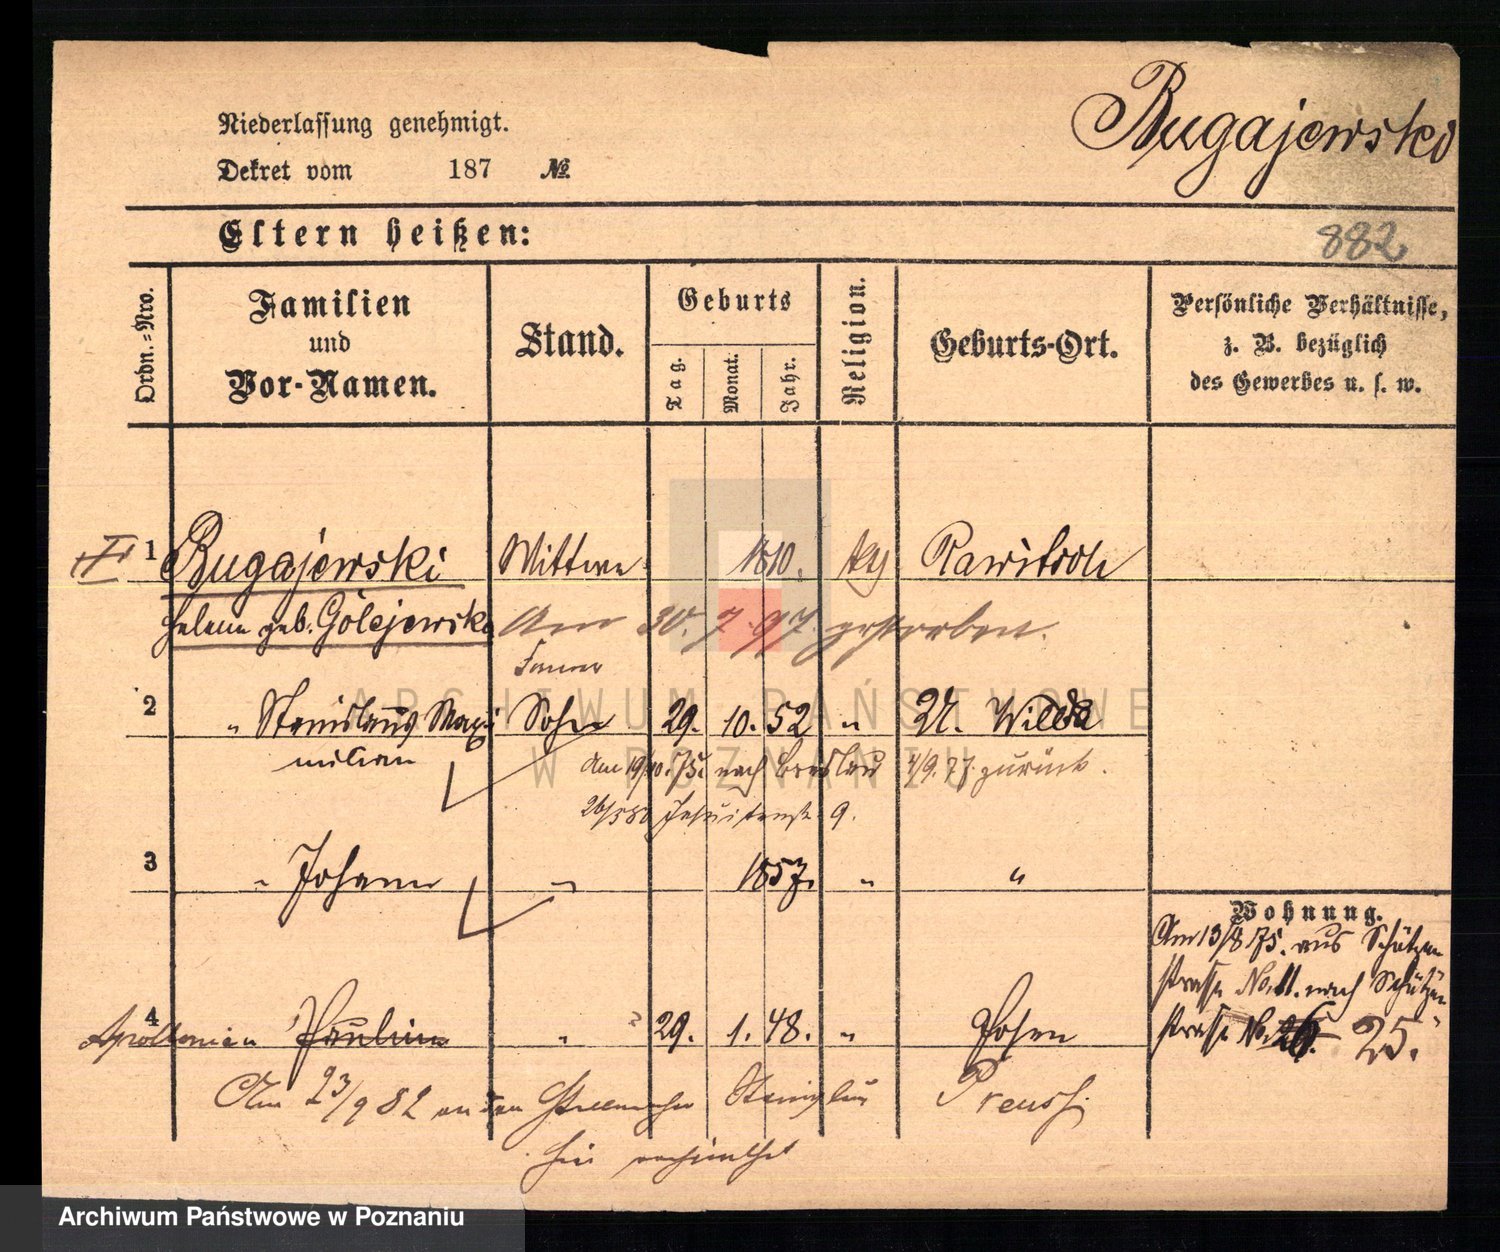 Bugajewski
Niederlassung genehmigt.
Dekret vom 187 №
Eltern heißen:
882
Ordn.-Nro.
Familien
und
Vor-Namen.
Stand.
Geburts
Tag.
Monat.
Jahr.
Religion.
Geburts-Ort.
Persönliche Verhältnisse,
z. B. bezüglich
des Gewerbes u. s. w.
1 Bugajewski Wittwe 1810. kth Rawitsch
Helene geb. Golejewska Am 30. 7. 97. gestorben.
2 " Stanislaus Maxi Sohn 29. 10. 52 " U. Wilda
milian Am 19/10. 75. nach Breslau 4/9. 77. zurück.
26/5 80 Jesuitenstr. 9.
3 " Johann " 1857. " "
Wohnung.
Am 13/8 75. aus Schützen
strasse No. 11. nach Schützen
strasse No. 25.
4 Apollonia Paulina " 29. 1. 48. " Posen
Am 23/9 82 an den Stanislaus Preuss
hier verheirathet
ARCHIWUM PAŃSTWOWE
W POZNANIU
Archiwum Państwowe w Poznaniu